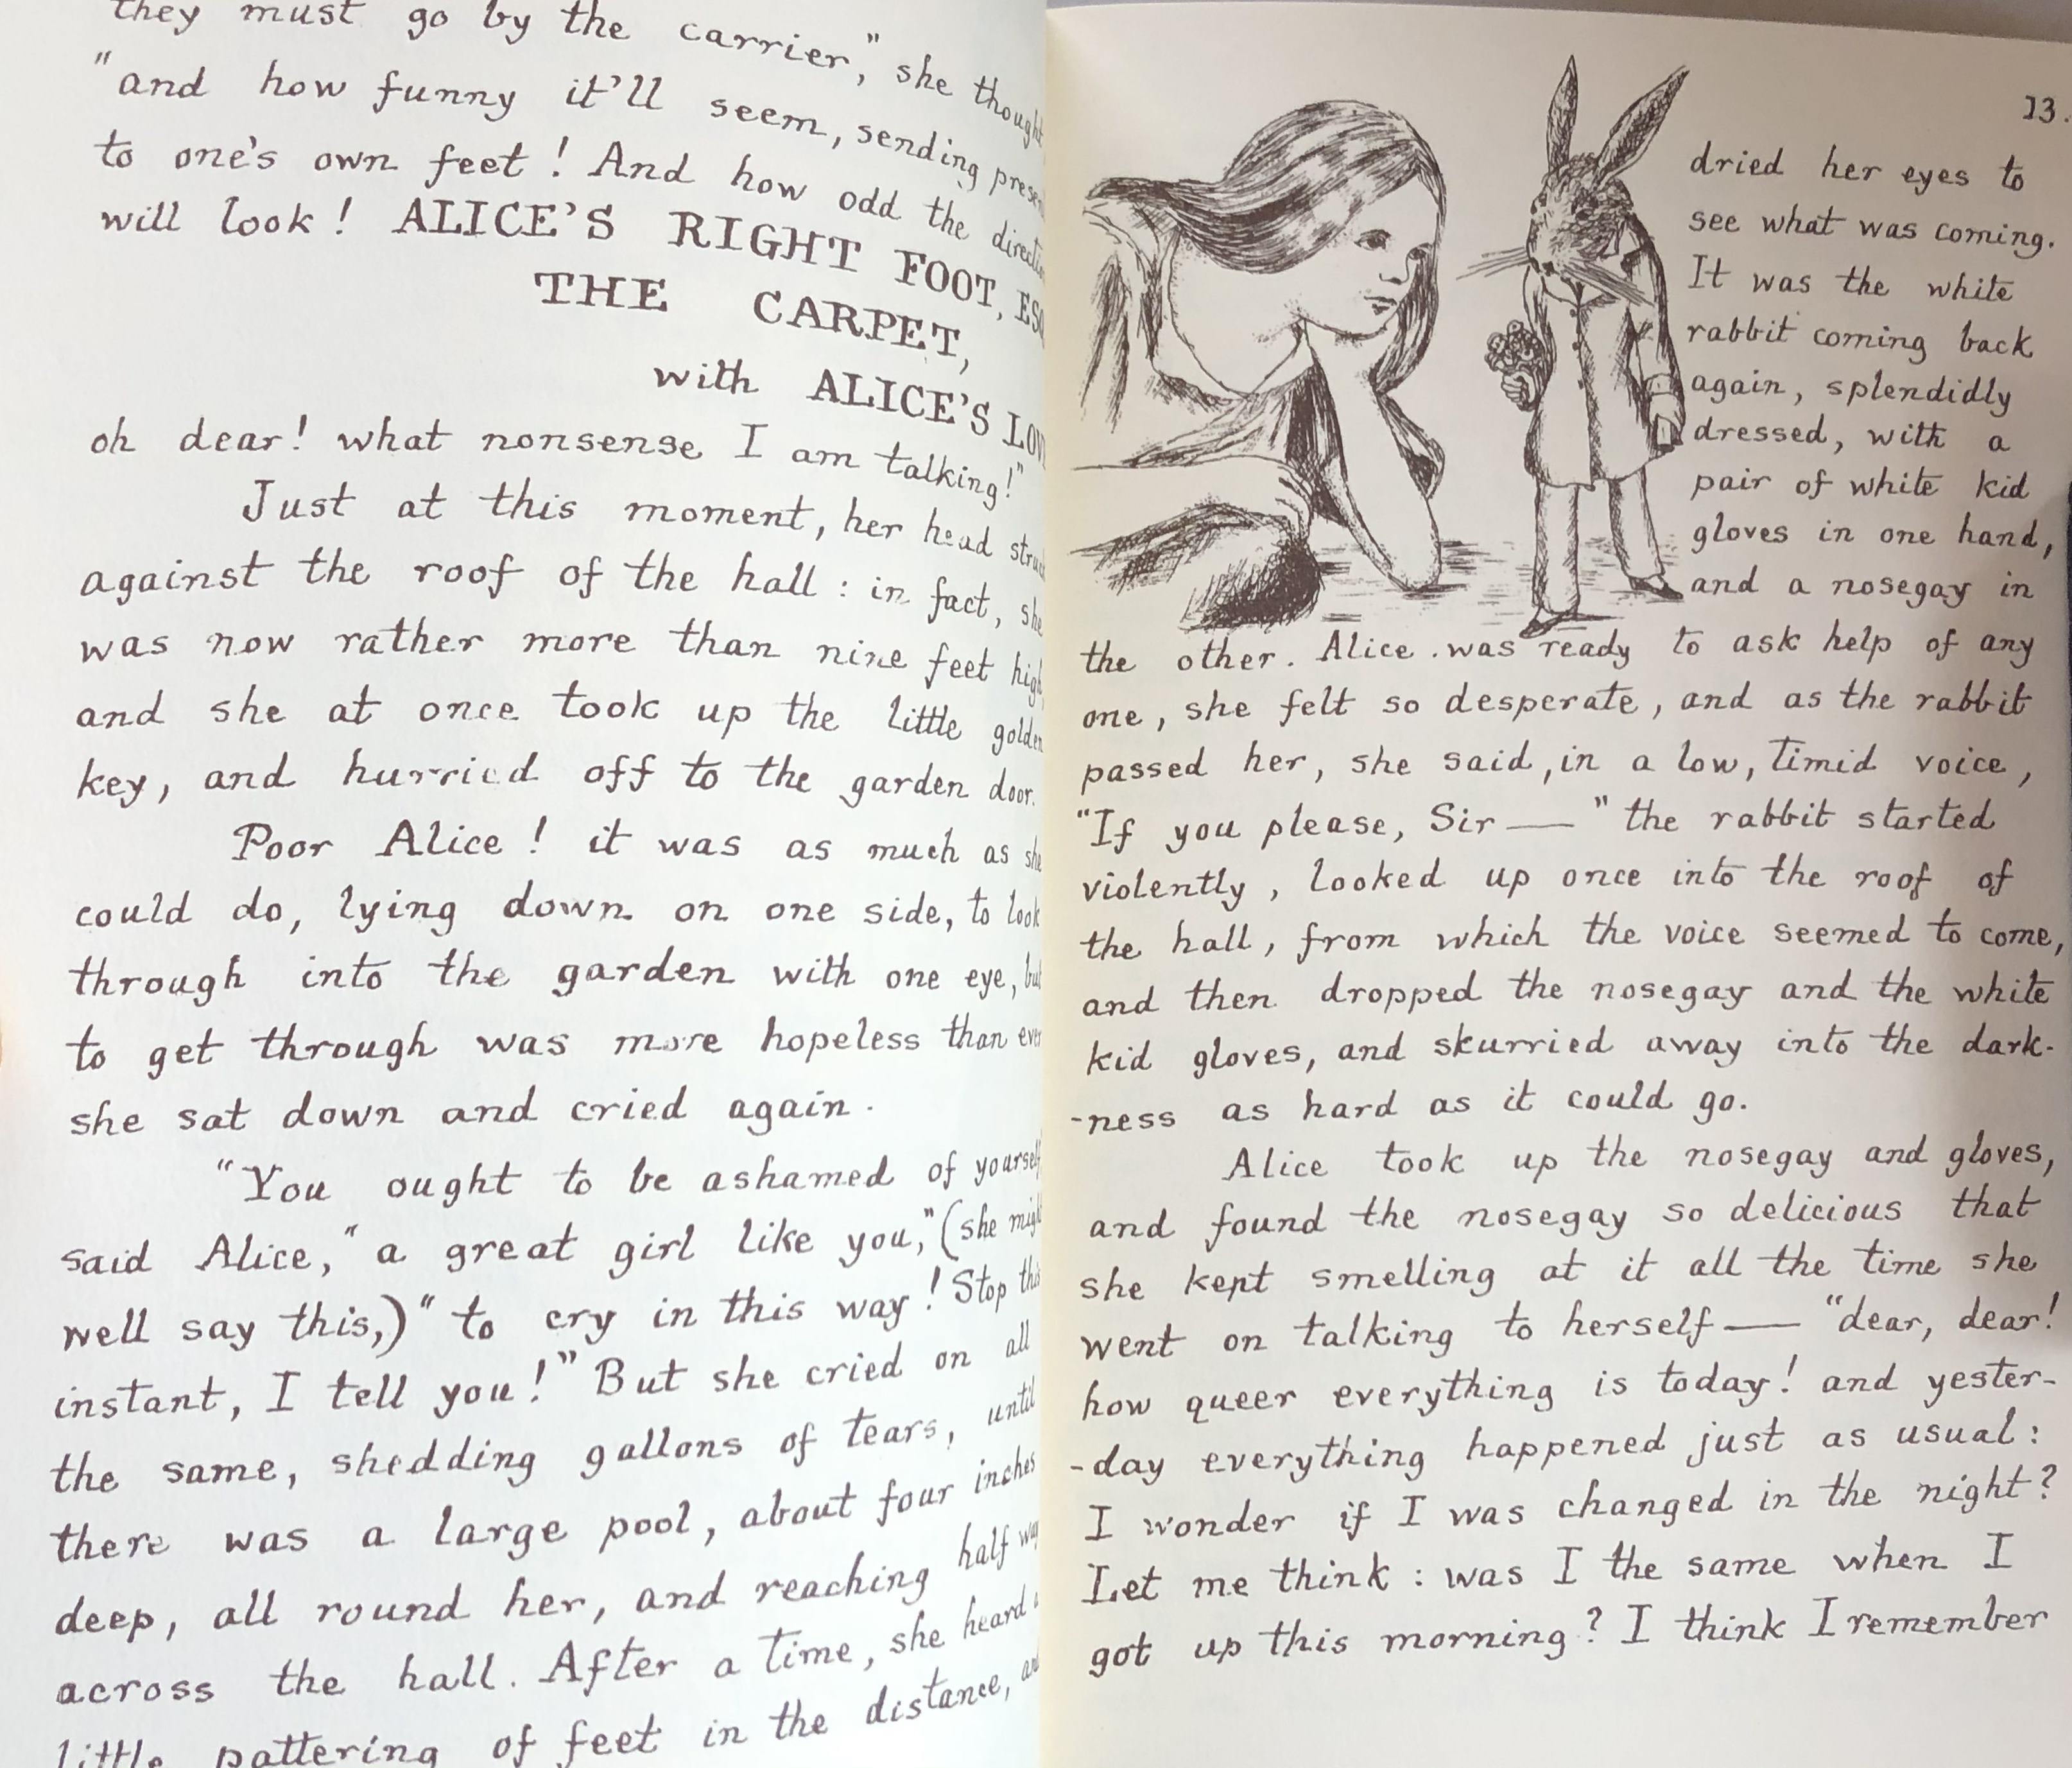 they must go by the carrier," she thought
"and how funny it'll seem, sending
to one's own feet! And how odd the
will look! ALICE'S RIGHT FOOT,
THE CARPET,
with ALICE'S
oh dear! what nonsense I am talking!"
Just at this moment, her head
against the roof of the hall: in fact, she
was now rather more than nine feet high
and she at once took up the little golden
key, and hurried off to the garden door.
Poor Alice! it was as much as she
could do, lying down on one side, to look
through into the garden with one eye, but
to get through was more hopeless than ever
she sat down and cried again.
"You ought to be ashamed of yourself
said Alice, "a great girl like you," (she might
well say this,) "to cry in this way! Stop this
instant, I tell you!" But she cried on all
the same, shedding gallons of tears, until
there was a large pool, about four inches
deep, all round her, and reaching half way
across the hall. After a time, she heard a
little pattering of feet in the distance, and
13.
dried her eyes to
see what was coming.
It was the white
rabbit coming back
again, splendidly
dressed, with a
pair of white kid
gloves in one hand,
and a nosegay in
the other. Alice was ready to ask help of any
one, she felt so desperate, and as the rabbit
passed her, she said, in a low, timid voice,
"If you please, Sir—" the rabbit started
violently, looked up once into the roof of
the hall, from which the voice seemed to come,
and then dropped the nosegay and the white
kid gloves, and skurried away into the dark-
-ness as hard as it could go.
Alice took up the nosegay and gloves,
and found the nosegay so delicious that
she kept smelling at it all the time she
went on talking to herself— "dear, dear!
how queer everything is today! and yester-
-day everything happened just as usual:
I wonder if I was changed in the night?
Let me think: was I the same when I
got up this morning? I think I remember